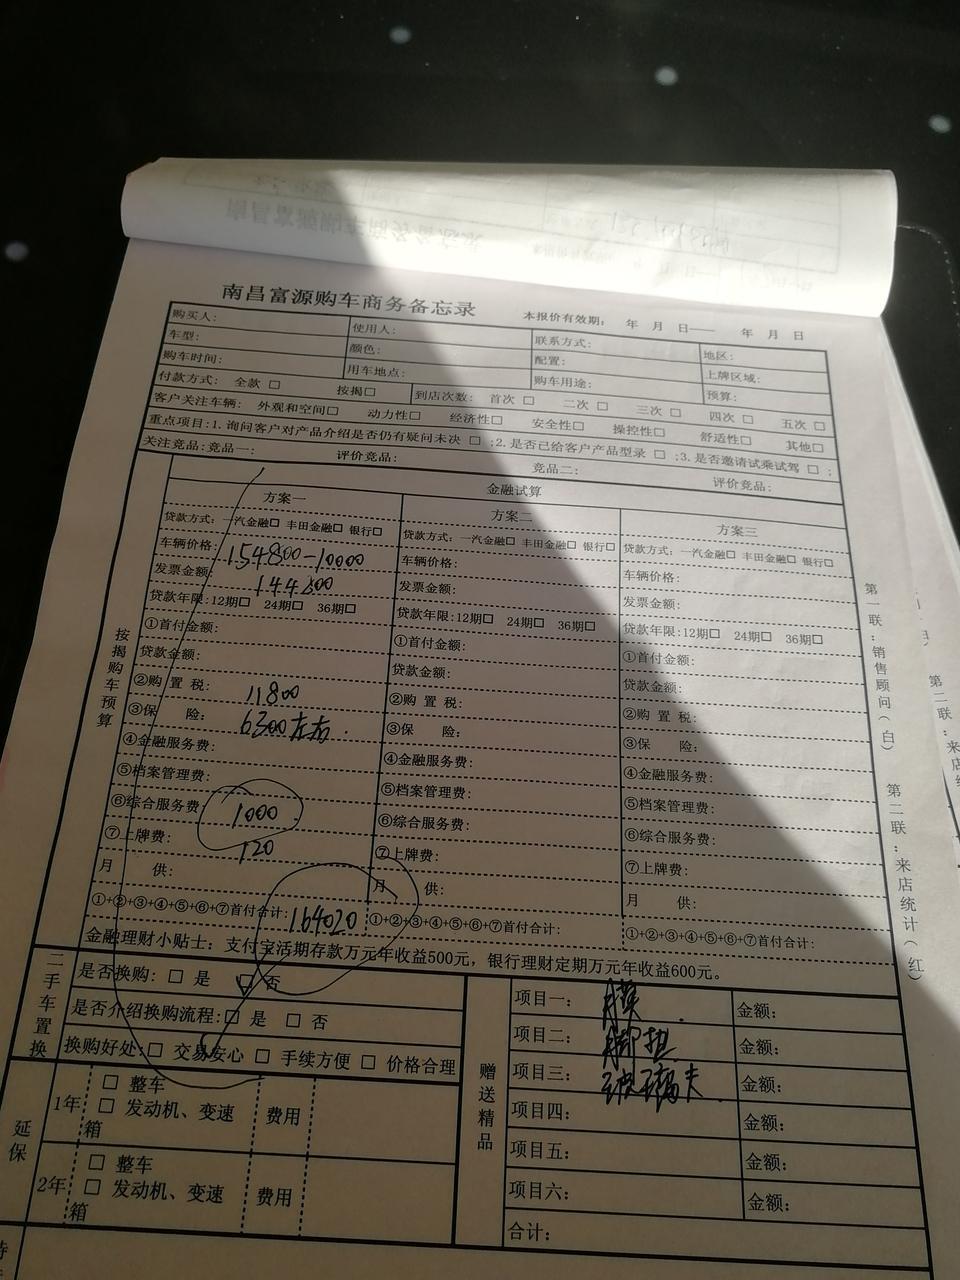 南昌富源购车商务备忘录 本报价有效期： 年 月 日—— 年 月 日
购买人： 使用人： 联系方式： 地区：
车型： 颜色： 配置： 上牌区域：
购车时间： 用车地点： 购车用途： 预算：
付款方式： 全款 □ 按揭□ 到店次数： 首次 □ 二次 □ 三次 □ 四次 □ 五次 □
客户关注车辆： 外观和空间□ 动力性□ 经济性□ 安全性□ 操控性□ 舒适性□ 其他□
重点项目:1.询问客户对产品介绍是否仍有疑问未决 □ ;2.是否已给客户产品型录 □ ;3.是否邀请试乘试驾 □ ;
关注竞品:竞品一: 评价竞品: 竞品二: 评价竞品:
按揭购车预算
金融试算
方案一 方案二 方案三
贷款方式: 一汽金融□ 丰田金融□ 银行□ 贷款方式: 一汽金融□ 丰田金融□ 银行□ 贷款方式: 一汽金融□ 丰田金融□ 银行□
车辆价格: 154800-10000 车辆价格: 车辆价格:
发票金额: 144800 发票金额: 发票金额:
贷款年限:12期□ 24期□ 36期□ 贷款年限:12期□ 24期□ 36期□ 贷款年限:12期□ 24期□ 36期□
①首付金额: ①首付金额: ①首付金额:
贷款金额: 贷款金额: 贷款金额:
②购 置 税: 11800 ②购 置 税: ②购 置 税:
③保 险: 6300左右. ③保 险: ③保 险:
④金融服务费: ④金融服务费: ④金融服务费:
⑤档案管理费: ⑤档案管理费: ⑤档案管理费:
⑥综合服务费: 1000 ⑥综合服务费: ⑥综合服务费:
⑦上牌费: 120 ⑦上牌费: ⑦上牌费:
月 供: 月 供: 月 供:
①+②+③+④+⑤+⑥+⑦首付合计: 164020 ①+②+③+④+⑤+⑥+⑦首付合计: ①+②+③+④+⑤+⑥+⑦首付合计:
金融理财小贴士：支付宝活期存款万元年收益500元，银行理财定期万元年收益600元。
二手车置换
是否换购: □ 是 □ 否
是否介绍换购流程:□ 是 □ 否
换购好处:□ 交易安心 □ 手续方便 □ 价格合理
延保
1年 □ 整车 □ 发动机、变速箱 费用
2年 □ 整车 □ 发动机、变速箱 费用
赠送精品
项目一: 膜. 金额:
项目二: 脚垫 金额:
项目三: 金额:
项目四: 金额:
项目五: 金额:
项目六: 金额:
合计:
第一联：销售顾问（白）
第二联：来店统计（红）
第二联：来店